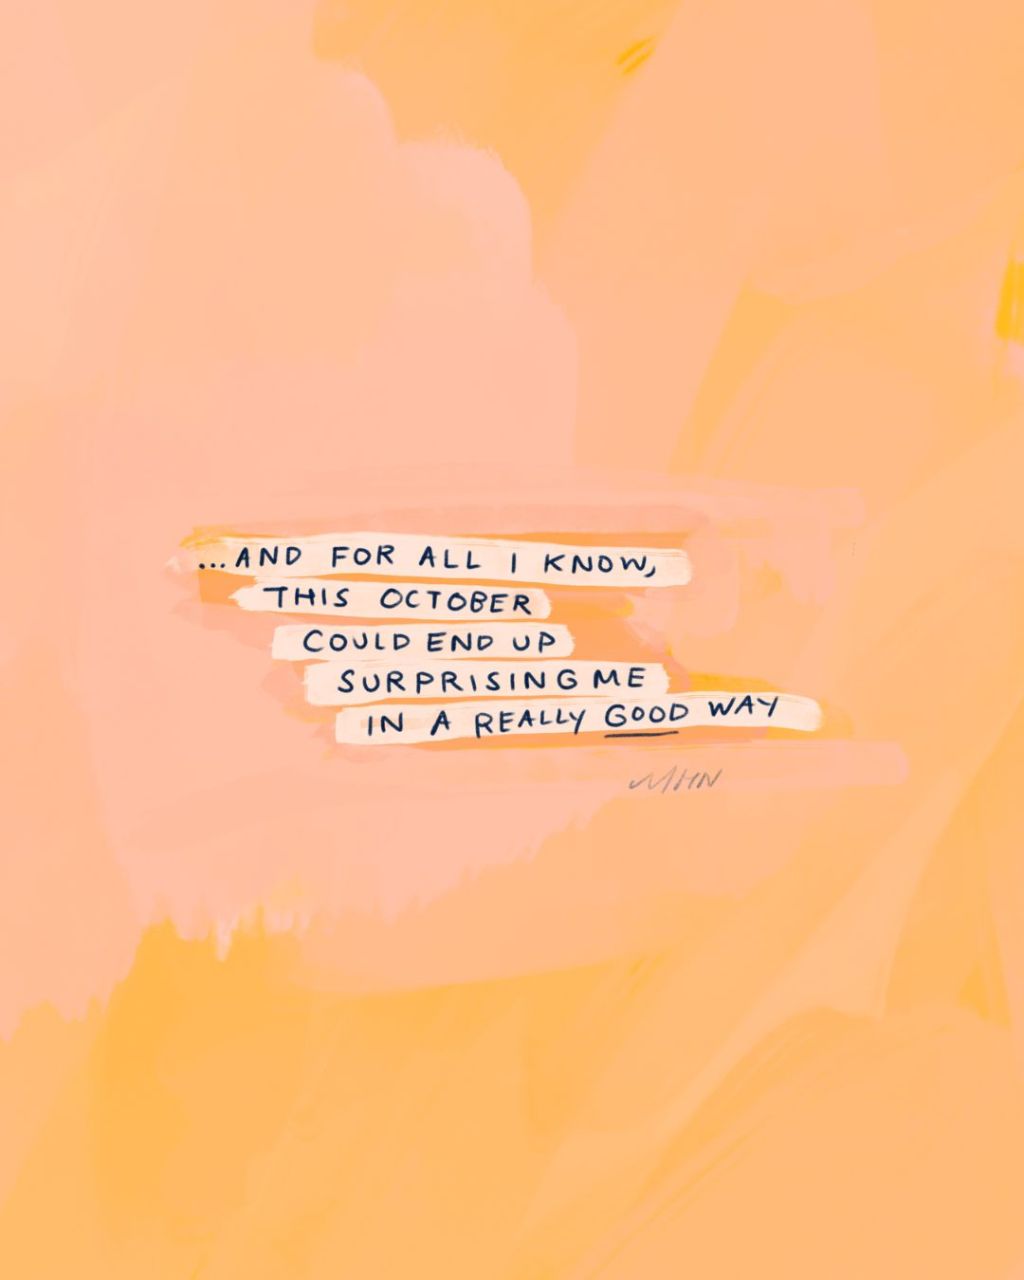 ...AND FOR ALL I KNOW,
THIS OCTOBER
COULD END UP
SURPRISING ME
IN A REALLY GOOD WAY
MHN